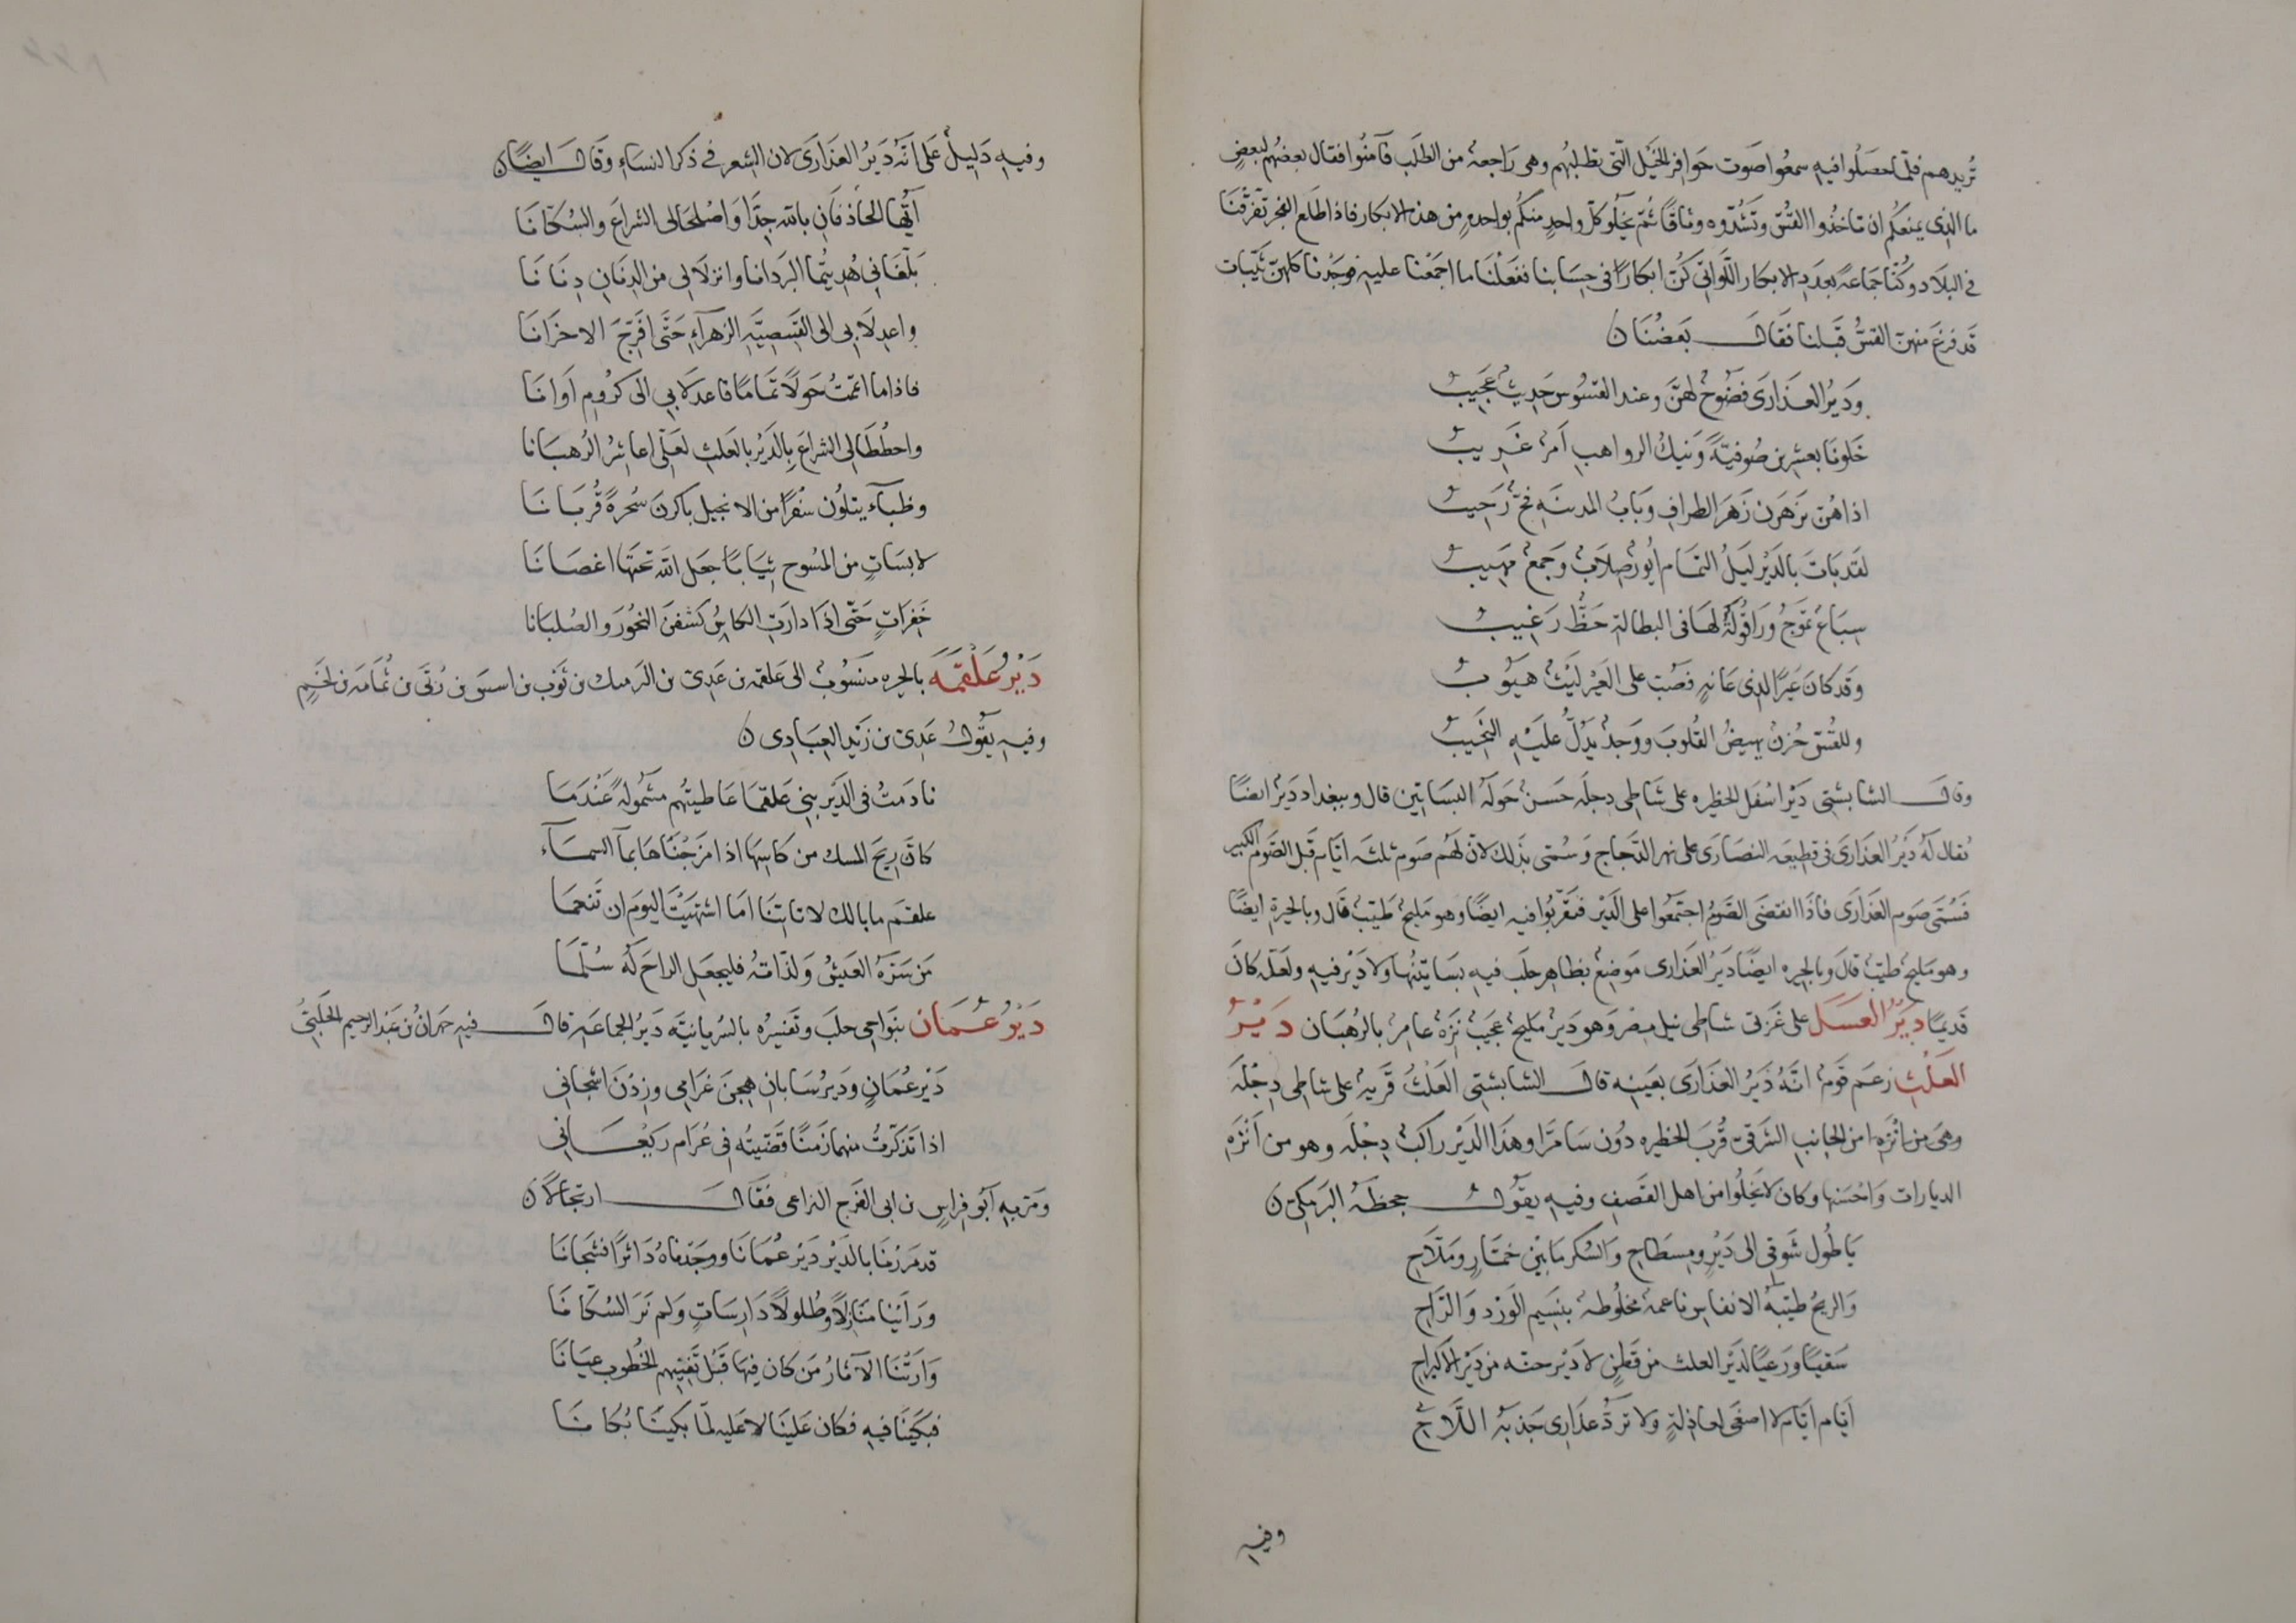 تُريدهم فلمّا حصلُوا فيه سمعُوا صَوت حَوافر الخيْل التى تطلبُهم وهى رَاجعة من الطلَب فامنُوا فقال بعضُهم لبعضٍ
ما الذى يمنعكُم ان تاخذُوا القسّ وتشُدّوه وثاقًا ثُمّ يخلُو كلّ واحدٍ منكُم بواحدةٍ من هذه الابكار فاذا طلع الفجر تفرقنا
فى البلَاد وكُنّا جمَاعةً بعدد الابكار اللّواتى كُنّ ابكارًا فى حِسَابنا ففعَلْنَا ما اجمَعْنا عليه فوجَدْنا كلهنّ ثيّبات
قد فرغ منهنّ القسُّ قَبلنا فقَال بعَضُنَا ن
ودَيرُ العَذَارَى فضُوحٌ لهنَّ وعند القسُوس حَديثٌ عجَيبُ
خَلونَا بعشرين صُوفيّةً ونيكُ الرواهب اَمرٌ غَريبُ
اذا هُنّ يَزهَرن زَهرَ الطراف وبَابُ المدينَة فجّ رَحيبُ
لقد بَاتَ بالدَيْر ليَلُ التمَام اُيُورٌ صِلَابٌ وَجمعٌ مَهيبُ
سِبَاعٌ تموجُ ورَاقُولةٌ لهَا فى البطالة حَظّ رَغيبُ
وقد كانَ عَيرًا لذى عَانةٍ فصُبّ على العَيْر ليَثٌ هيَوبُ
وللقُسّ حُزنٌ يهيضُ القلُوبَ ووَجدٌ يدَلّ علَيْه النّحيبُ
وقال الشابشتى دَيْر اسْفل الحظيره على شاطى دجلَه حَسَنٌ حَولَهُ البسَاتين قال وببغداد دَيْر ايضًا
يُقال لهُ دَيْرُ العذَارىَ فى قطيعه النصَارىَ على نهر الدّجاج وَسُمّى بذلك لانّ لهُم صَوم ثلثه ايّام قبل الصَوم الكبير
فَسُمّى صَوم العذَارَى فاذَا انقضَى الصَّومُ اجتَمعُوا على الدَيْر فتقرّبُوا فيه ايضًا وهو مَليح طيّبٌ قال وبالحيرة ايضًا
وهو مَليح طيّبٌ قالَ وبالحيره ايضًا دَيرُ العَذارى موَضِعٌ بظاهر حلَب فيه بسَاتينُها ولا دَيْر فيه ولعَلّه كانَ
قديمًا دَيْرُ العسَل على غَربّى شاطى نيل مِصْر وَهو دَيْرٌ مَليح عجيَبٌ نَزِهٌ عامِرٌ بالرُهبَان دَيْرُ
العَلْث زعَم قومٌ انّهُ دَيْرُ العذَارَى بعَينه قال الشابشتى العَلْثُ قريةٌ على شاطى دِجْلَة
وهى من الجَانبِ الشرقىّ قُربَ الحظيره دُون سَامرّا وهذَا الدَيْر راكبٌ دِجْلَه وهو من اَنزَه
الديارات وَاحْسَنها وكان لا يَخلُوا من اهل القصف وفيه يقوُلُ جحظَهُ البرمكىّ ن
يَا طُول شَوقى الى دَيْرٍ ومِسطَاحِ وَالسُكر مَا بَيْن خمّار ومَلّاحِ
وَالريحُ طيّبَةُ الانفاس ناعمةٌ مخلُوطةٌ بنَسيم الوَرد وَالرَّاحِ
سَقيًا ورَعيًا لدَيْر العلث من وَطنٍ لا دَيْر حنّه من دَيْر الاكيراحِ
ايّام ايّام لا اصغَى لعاذلةٍ ولا ترُدُّ عذَارى جَذبَةُ اللّاحى
وفيه
وفيهِ دَليلٌ عَلى انّهُ دَيرُ العذَارَى لان الشعر فى ذكر النسَاءِ وقَال ايضًا ن
اَيّهَا الحاذفَان باللّه جدّا وَاصْلحَا لى الشراعَ والسُكّانَا
بَلّغَانى هُديتُما البَرَدَانا وانزلَا لى من الدنَان دِنَانَا
واعدلَا بى الى القبَيصيّة الزهرَآءِ حَتّى اُفَرّجَ الاحزَانَا
فاذا ما اتمّمتُ حَولًا تمَامًا فاعدلَا بى الى كرُوم اَوَانَا
واحطُطَا لى الشراعَ بالدَيْر بالعَلث لعَلّى اعاشرُ الرُهبَانا
وظبآءَ يتلُون سْفرًا من الانجيل باكرنَ سُحرَةً قُربَانَا
لابسَاتٍ من المسُوح ثيَابًا جعَل اللّه تحتهَا اغصَانَا
خَفِرَاتٍ حَتّى اذَا دارَت الكاسُ كشفنَ النحُورَ والصُلبَانَا
دَيْرُ عَلْقمَهَ بالحيره منسُوبٌ الى علقمه بن عَدِىّ بن الرميك بن ثَوْب بن اسس بن رُبّى بن نُمَارَه بن لخْمٍ
وفيه يقُولُ عَدِىّ بن زَيْد العِبَادِى ن
نادمتُ فى الدَيْر بنى عَلقمَا عَاطيتهُم مشمُولةً عَنْدَمَا
كانّ ريَح المسك من كاسهَا اذا مزجْنَاهَا بمآ السمَآءِ
علقم ما بالك لا تاتنَا اَمَا اشتهيَتَ اليَوم ان تَنعمَا
مَن سَرّهُ العَيشُ وَلذّاتهُ فليجعَل الراحَ لهُ سُلّمَا
دَيْرُ عُمَان بنَواحى حلَبَ وتَفسيرُه بالسُريانيّة دَيْرُ الجماعَةِ قال فيه حمدانُ بن عَبد الرحيم الحَلَبىّ
دَيْر عُمَانٍ ودَيرُ سَابَانِ هيجنَ غَرَامى وزِدْنَ اشجانى
اذا تَذكرّتُ منهما زمَنًا قضّيتُه فى عُرَام رَيْعَانى
ومَرّ به ابُو فراسٍ بن ابى الفرَج البزاعى فقَال ارتجالًا ن
قد مَررْنَا بالدَيْر دَيْر عُمَانَا ووجَدْناهُ دَاثرًا فشجَانَا
ورَاَيْنا منَازِلًا وَطُلولًا دَارسَاتٍ وَلم نَرَ السُكّانَا
وَارتْنَا الآثارُ مَن كان فيهَا قبَلَ تفنيهم الخُطوب عيَانَا
فبكَيْنَا فيه فكان علَينَا لا عَليه لمّا بكيَنَا بُكانَا